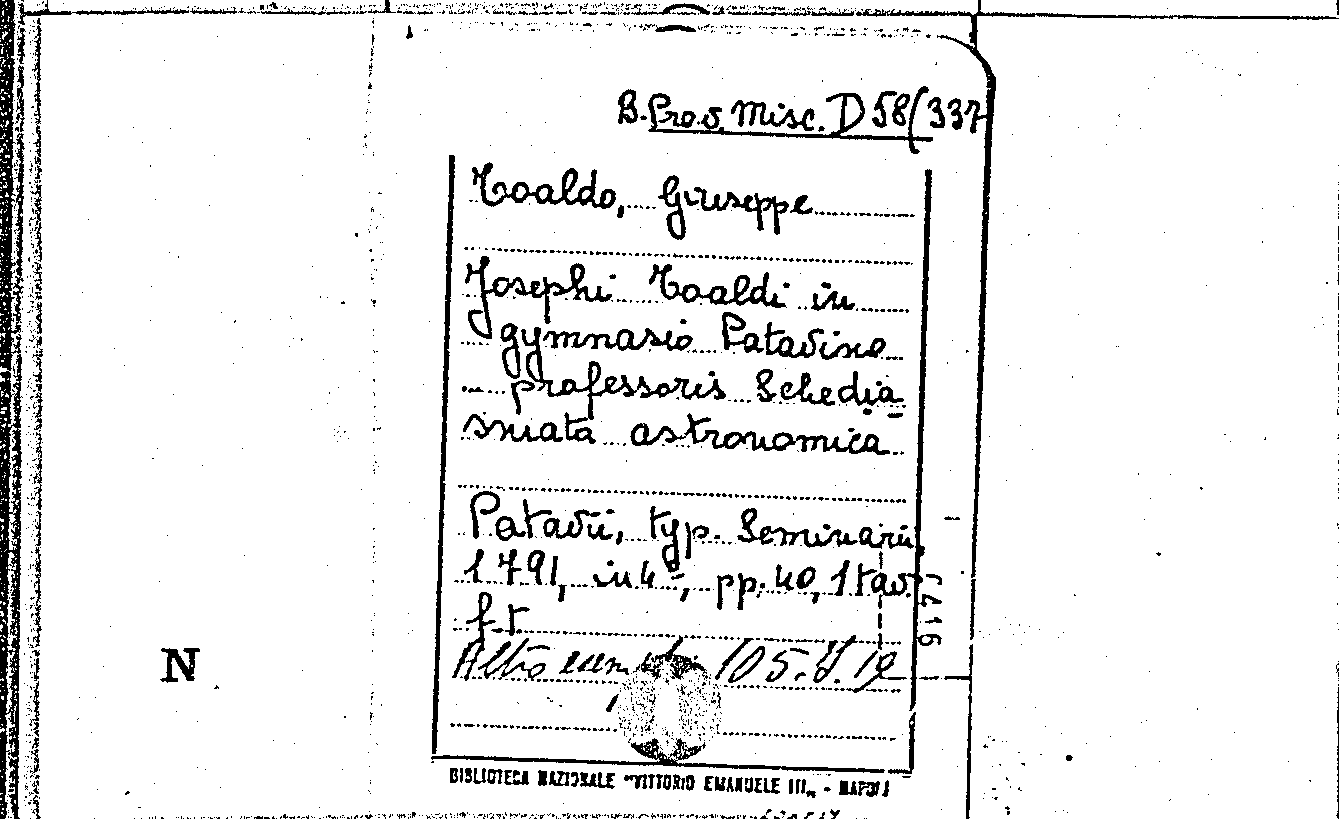 B. Prov. Misc. D 58(337
Toaldo, Giuseppe
Josephi Toaldi in
gymnasio Patavino
... professoris Schedia=
smata astronomica
Patavii, typ. Seminarii,
1791, in 4º, pp. 40, 1 tav.
f.t.
Altro 105. J. 19
N
BIBLIOTECA NAZIONALE "VITTORIO EMANUELE III„ - NAPOLI